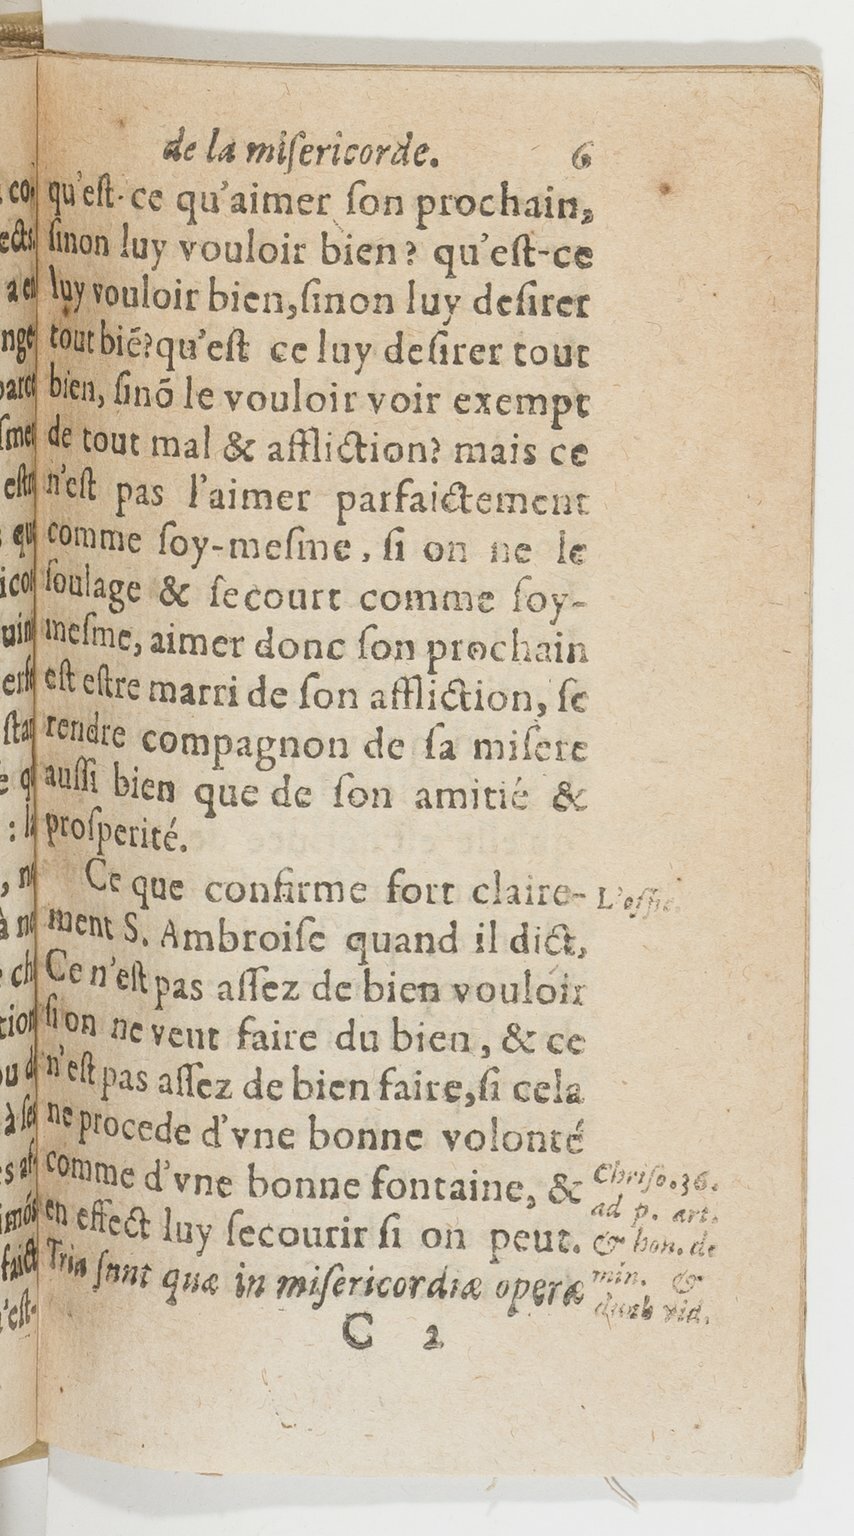 de la miſericorde. 6
qu'eſt-ce qu'aimer ſon prochain,
ſinon luy vouloir bien? qu'eſt-ce
luy vouloir bien, ſinon luy deſirer
tout biē? qu'eſt ce luy deſirer tout
bien, ſinõ le vouloir voir exempt
de tout mal & affliction? mais ce
n'eſt pas l'aimer parfaictement
comme ſoy-meſme, ſi on ne le
ſoulage & ſecourt comme ſoy-
meſme, aimer donc ſon prochain
eſt eſtre marri de ſon affliction, ſe
rendre compagnon de ſa miſere
auſſi bien que de ſon amitié &
proſperité.
Ce que confirme fort claire-
ment S. Ambroiſe quand il dict,
Ce n'eſt pas aſſez de bien vouloir
ſi on ne veut faire du bien, & ce
n'eſt pas aſſez de bien faire, ſi cela
ne procede d'vne bonne volonté
comme d'vne bonne fontaine, &
en effect luy ſecourir ſi on peut.
Tria ſunt quæ in miſericordiæ operæ
Chriſo. 36.
ad p. art.
& hon. de
min. &
vid.
C 2